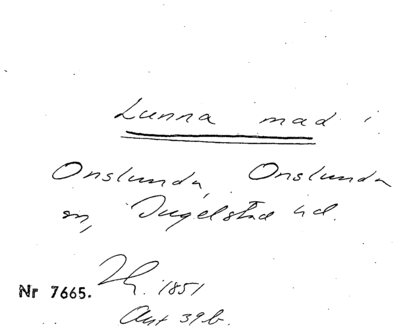 Lunna mad i
Onslunda, Onslunda
sn, Ingelstad hd.
Nr 7665. 1851
Ant 39b.